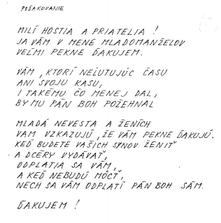 POĎAKOVANIE
MILÍ HOSTIA A PRIATELIA !
JA VÁM V MENE MLADOMANŽELOV
VEĽMI PEKNE ĎAKUJEM.
VÁM, KTORÍ NEĽUTUJÚC ČASU
ANI SVOJU KASU,
I TAKÉMU ČO MENEJ DAL,
BY MU PÁN BOH POŽEHNAL
MLADÁ NEVESTA A ŽENÍCH
VÁM VZKAZUJÚ, ŽE VÁM PEKNE ĎAKUJÚ.
KEĎ BUDETE VAŠICH SYNOV ŽENIŤ
A DCÉRY VYDÁVAŤ,
ODPLATIA SA VÁM,
A KEĎ NEBUDÚ MÔCŤ,
NECH SA VÁM ODPLATÍ PÁN BOH SÁM.
ĎAKUJEM !